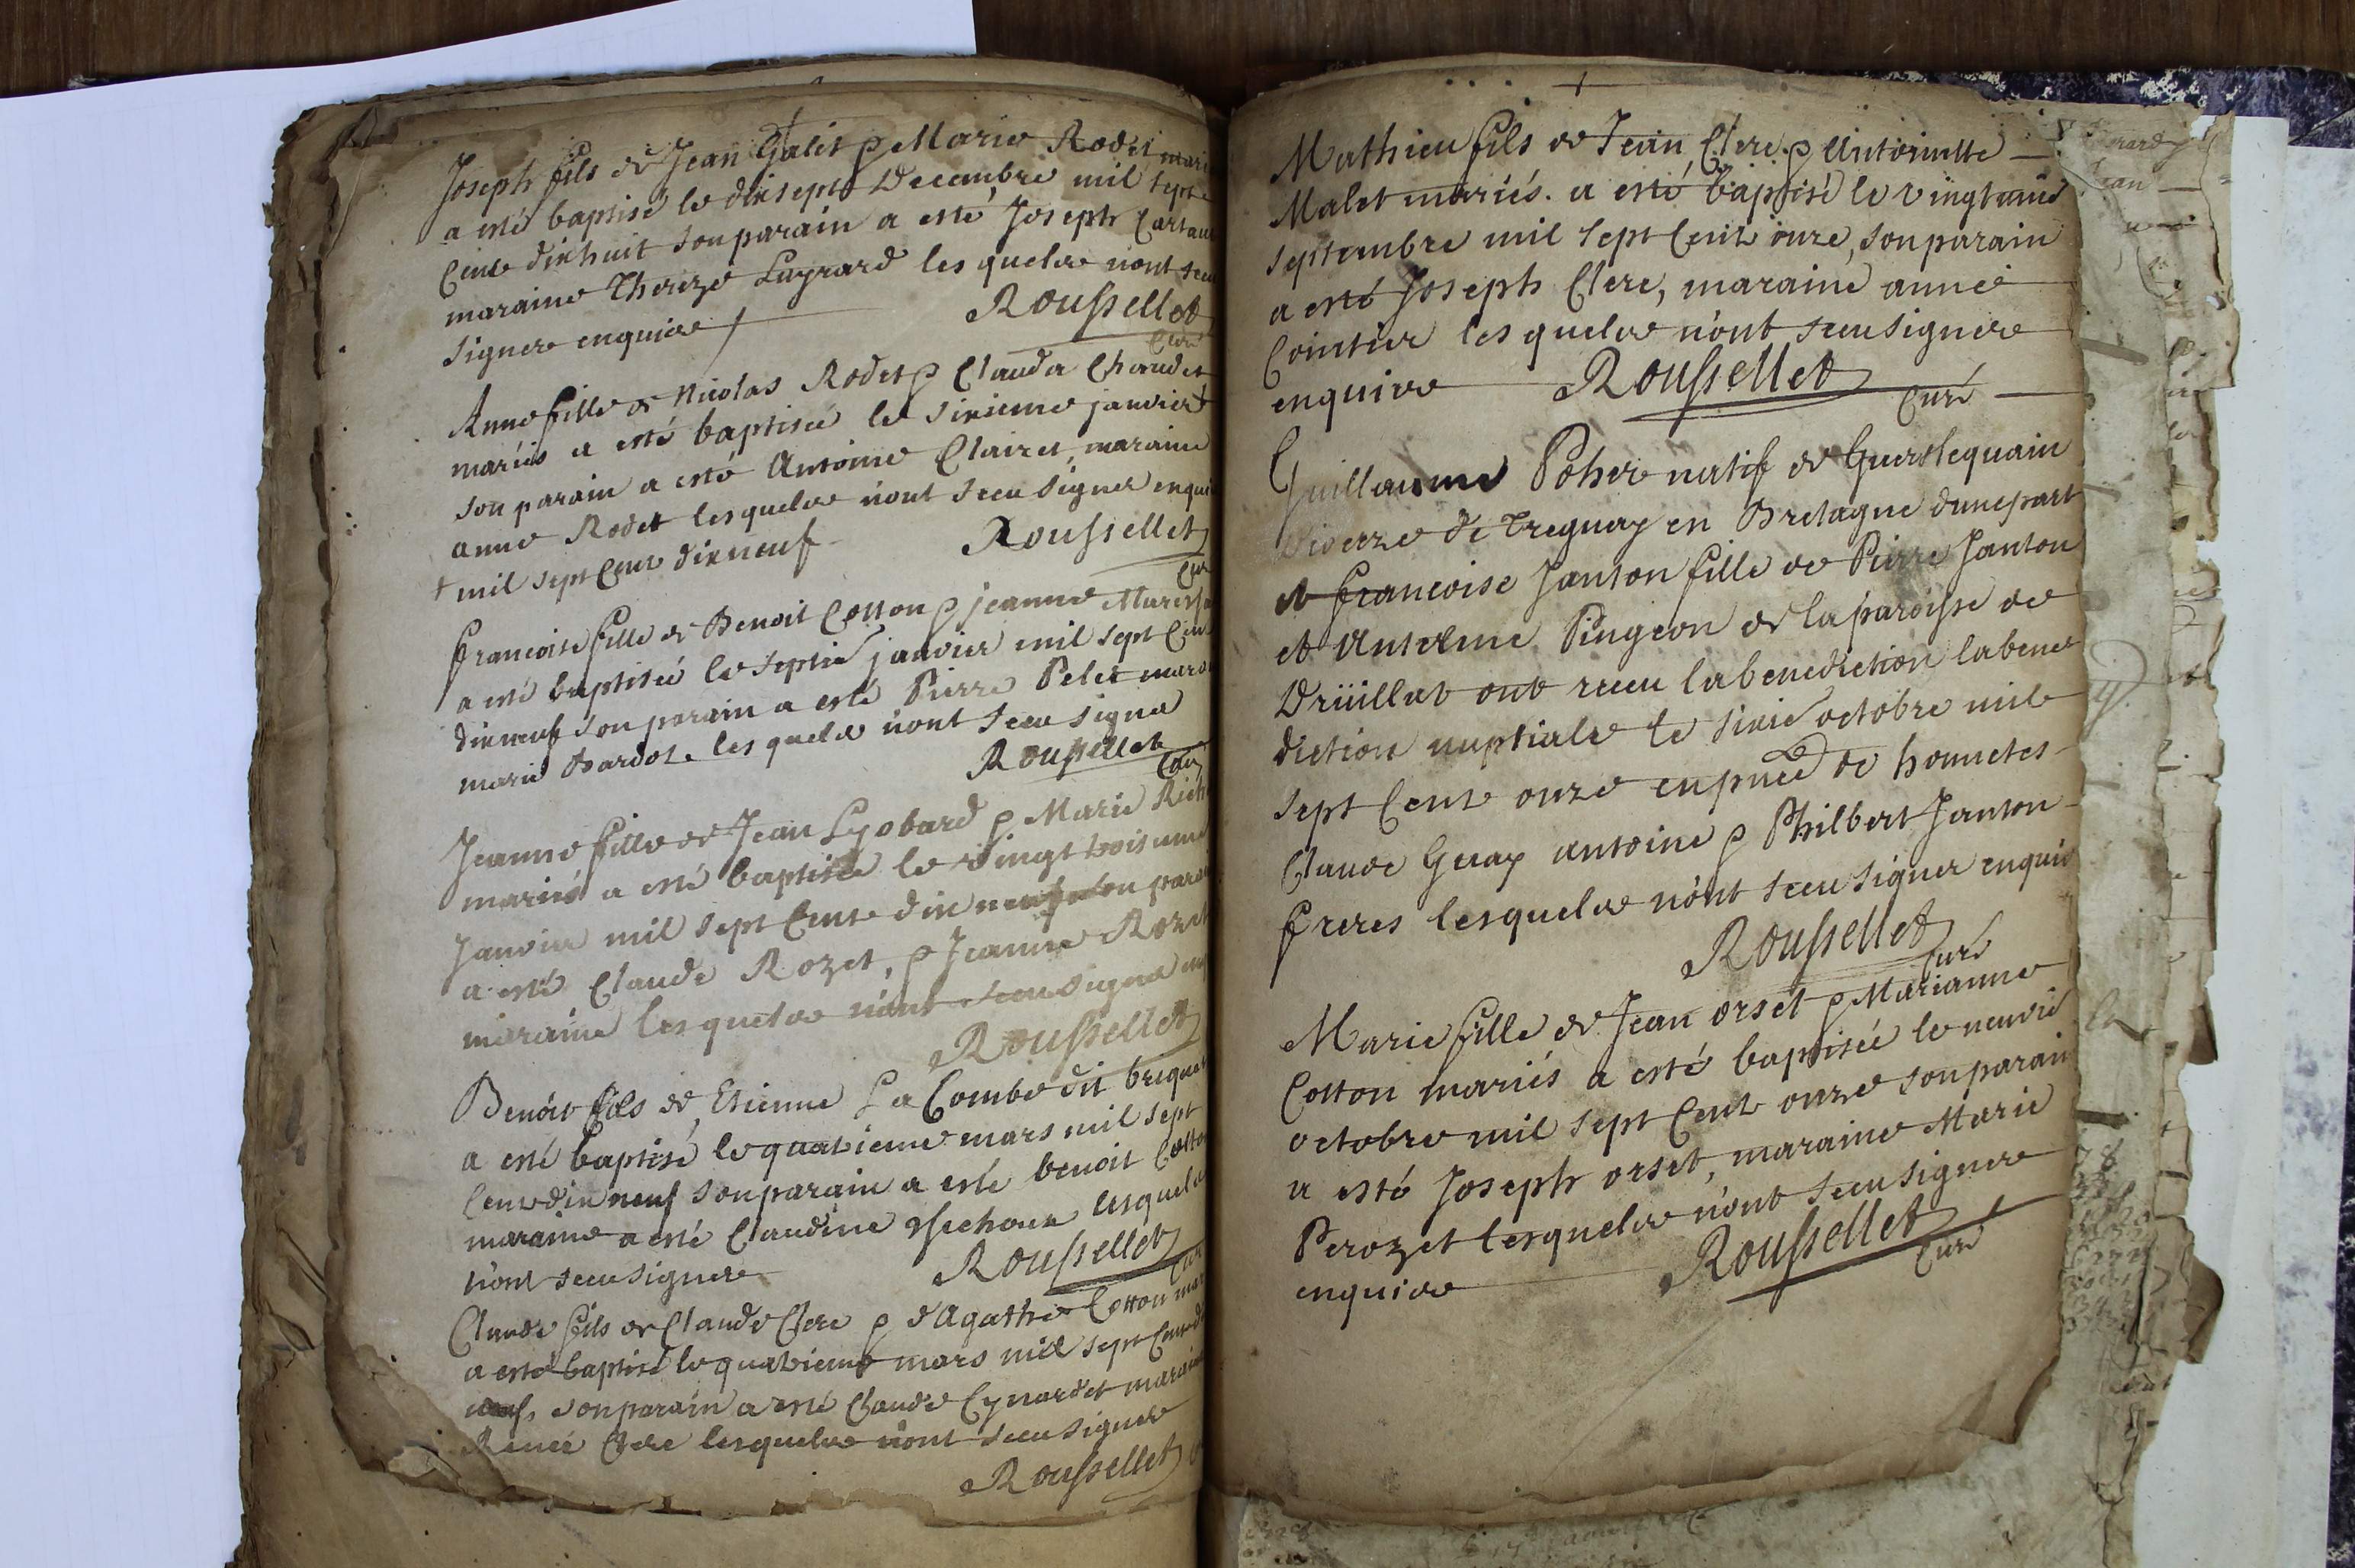 Joseph fils de Jean Galet & Marie Rodet mari
a esté baptisé le dixsepte Decembre mil sept
Cent dixhuit son parain a esté Joseph
maraine Thereze Layrard lesquels n'ont sceu
signer enquis
Roussellet
Curé
Anne fille de Nicolas Rodet & Clauda Chaudet
mariés a esté baptisée le sixieme janvier +
son parain a esté Antoine Clairet, maraine
anne Rodet lesquels n'ont sceu signer enqui
+ mil sept Cent dixneuf
Roussellet
Curé
francoise fille de Benoit Cotton & jeanne
a esté baptisée le septie janvier mil sept Cen
dixneuf son parain a esté Pierre Pelet mara
marie Bardot lesquels n'ont sceu signer
Roussellet
Curé
Jeanne fille de Jean Lyobard & Marie
mariés a esté baptisée le vingt troisieme
Janvier mil sept Cent dix neuf son para
a esté Claude Rozet, & Jeanne Rozet
maraine lesquels n'ont sceu signer enq
Roussellet
Benoit fils de Etienne La Combe dit briquet
a esté baptisé le quatrieme mars mil sept
Cent dix neuf son parain a esté benoit Cotto
maraine a esté Claudine lesquels
n'ont sceu signer
Roussellet
Cur
Claude fils de Claude Clere & d'Agathe Cotton mar
a esté baptisé le quatrieme mars mil sept Cent di
neuf, son parain a esté Claude Cynardet maraine
Renée Clere lesquels n'ont sceu signer
Roussellet
Mathieu fils de Jean Clere & Antoinette
Malet mariés. a esté baptisé le vingt
septembre mil sept Cent onze, son parain
a esté Joseph Clere, maraine anne
Cointier lesquels n'ont sceu signer
enquis Roussellet
Curé
Guillaume Poher natif de Guerslequain
Dioceze de Treguay en Bretagne dune part
et francoise Janton fille de Pierre Janton
et Antelme Pingeon de la paroisse de
Drüillat ont receu la benediction la bene
diction nuptiale le sixie octobre mil
sept Cent onze en pnce de honnetes
Claude Guay antoine & Philbert Janton
freres lesquels n'ont sceu signer enquis
Roussellet
Curé
Marie fille de Jean orset & Marianne
Cotton mariés a esté baptisée le neuvie
octobre mil sept Cent onze son parain
a esté Joseph orset, maraine Marie
Perozet lesquels n'ont sceu signer
enquis Roussellet
Curé